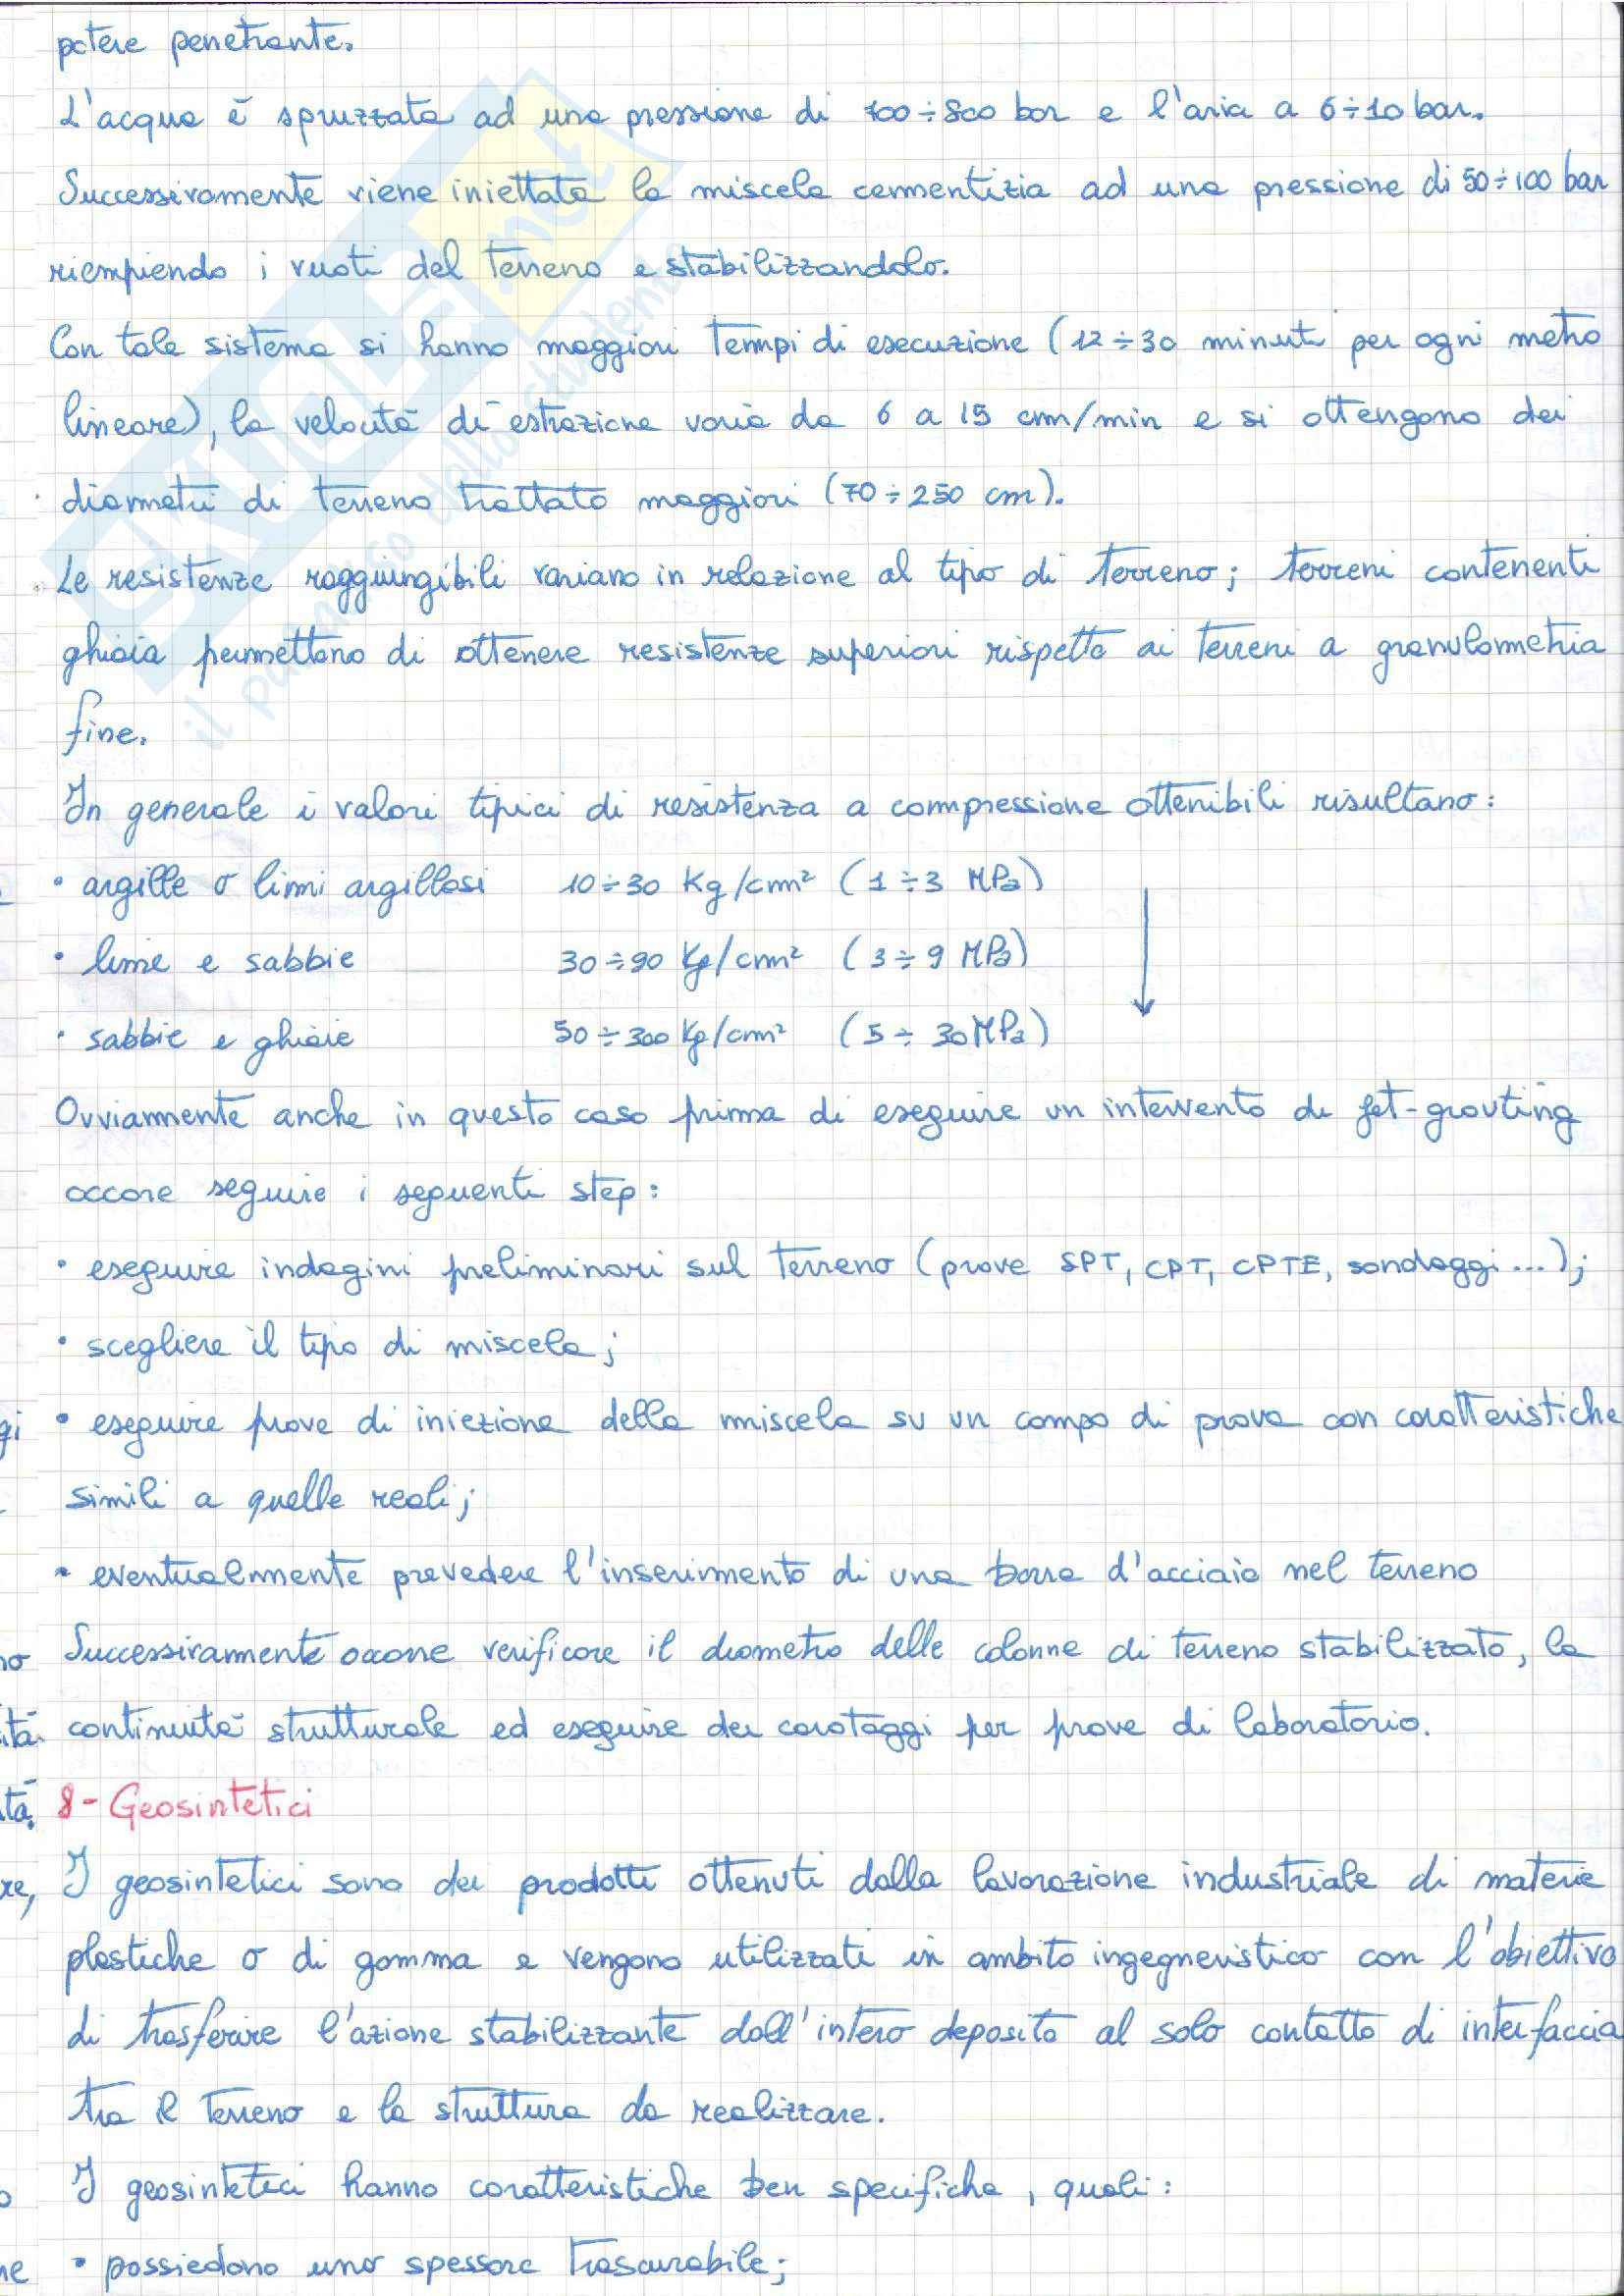 potere penetrante.
L'acqua è spruzzata ad una pressione di 400÷800 bar e l'aria a 6÷10 bar.
Successivamente viene iniettata la miscela cementizia ad una pressione di 50÷100 bar
riempiendo i vuoti del terreno e stabilizzandolo.
Con tale sistema si hanno maggiori tempi di esecuzione (12÷30 minuti per ogni metro
lineare), la velocità di estrazione varia da 6 a 15 cm/min e si ottengono dei
diametri di terreno trattato maggiori (70÷250 cm).
Le resistenze raggiungibili variano in relazione al tipo di terreno; terreni contenenti
ghiaia permettono di ottenere resistenze superiori rispetto ai terreni a granulometria
fine.
In generale i valori tipici di resistenza a compressione ottenibili risultano:
• argille o limi argillosi 10÷30 Kg/cm² (1÷3 MPa)
• lime e sabbie 30÷90 Kg/cm² (3÷9 MPa)
• sabbie e ghiaie 50÷300 Kg/cm² (5÷30 MPa)
Ovviamente anche in questo caso prima di eseguire un intervento di jet-grouting
occore seguire i seguenti step:
• eseguire indagini preliminari sul terreno (prove SPT, CPT, CPTE, sondaggi...);
• scegliere il tipo di miscela;
gi • eseguire prove di iniezione della miscela su un campo di prova con caratteristiche
simili a quelle reali;
• eventualmente prevedere l'inserimento di una barra d'acciaio nel terreno
no Successivamente occore verificare il diametro delle colonne di terreno stabilizzato, la
ità continuità strutturale ed eseguire dei carotaggi per prove di laboratorio.
tà. 8- Geosintetici
re, I geosintetici sono dei prodotti ottenuti dalla lavorazione industriale di materie
plastiche o di gomma e vengono utilizzati in ambito ingegneristico con l'obiettivo
di trasferire l'azione stabilizzante dall'intero deposito al solo contatto di interfaccia
tra il terreno e la struttura da realizzare.
o I geosintetici hanno caratteristiche ben specifiche, quali:
ne • possiedono uno spessore trascurabile;
SKUOLA.net